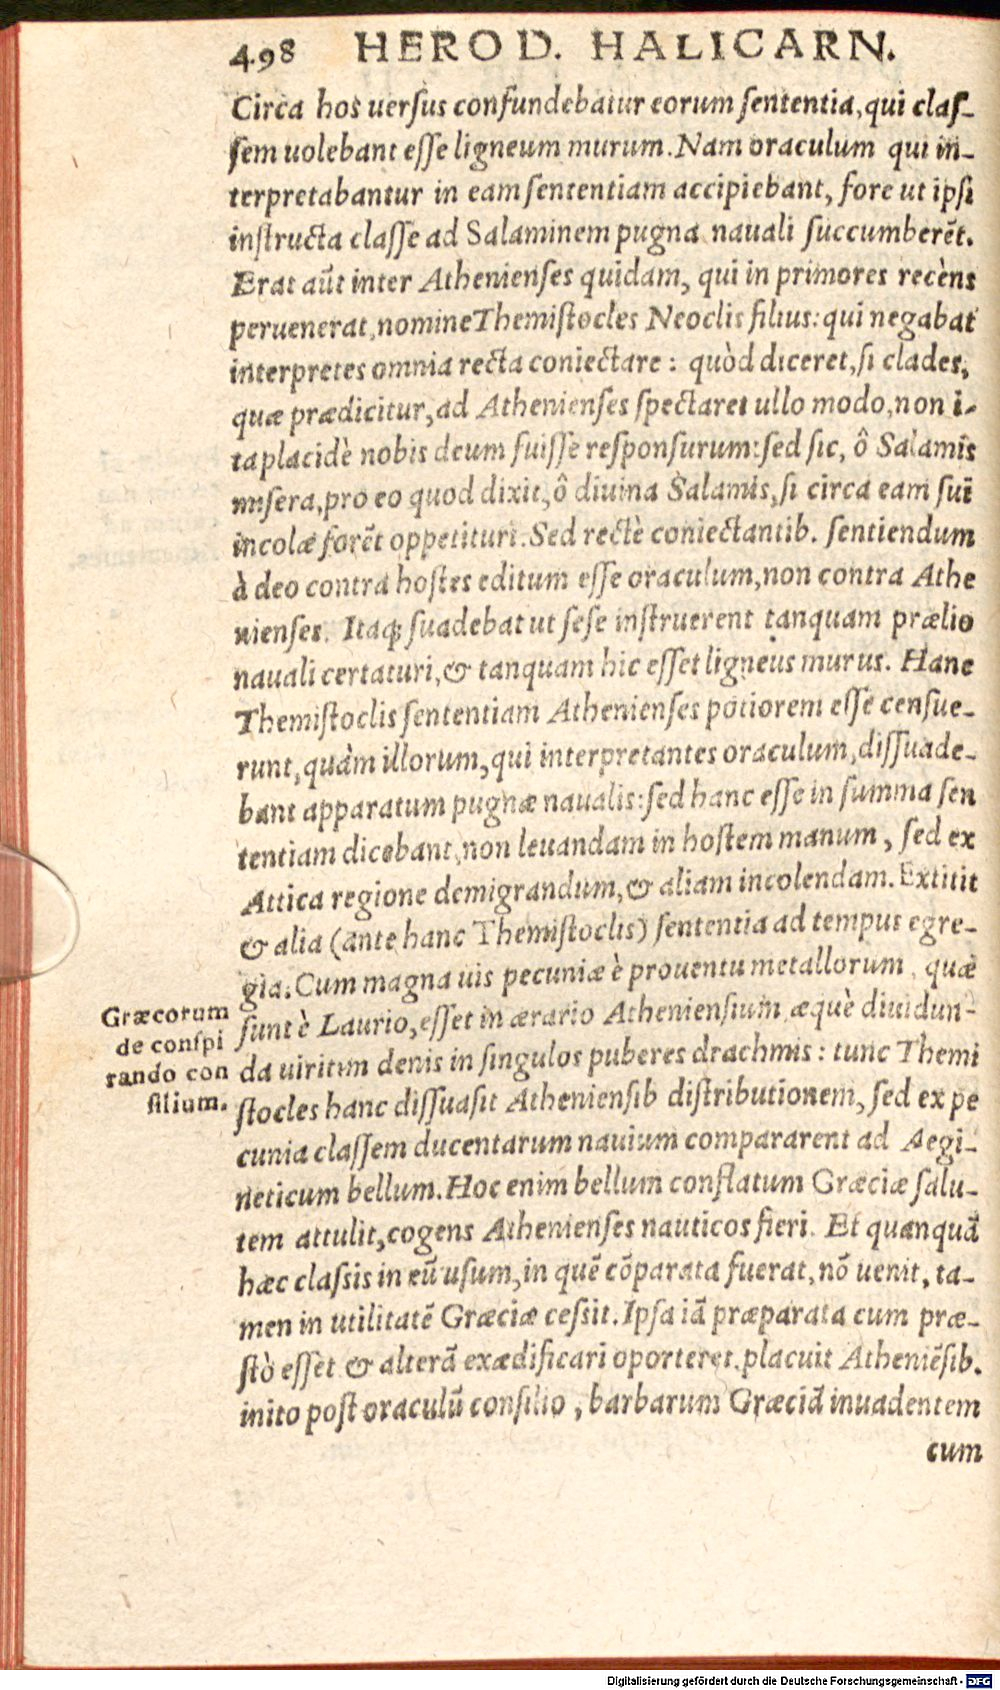 498 HEROD. HALICARN.
Circa hos uersus confundebatur eorum sententia, qui clas-
sem uolebant esse ligneum murum. Nam oraculum qui in-
terpretabantur in eam sententiam accipiebant, fore ut ipsi
instructa classe ad Salaminem pugna nauali succumberẽt.
Erat aũt inter Athenienses quidam, qui in primores recèns
peruenerat, nomine Themistocles Neoclis filius: qui negabat
interpretes omnia recta coniectare: quòd diceret, si clades,
quæ prædicitur, ad Athenienses spectaret ullo modo, non i-
ta placidè nobis deum fuisse responsurum: sed sic, ô Salamis
misera, pro eo quod dixit, ô diuina Salamis, si circa eam sui
incolæ forẽt oppetituri. Sed rectè coniectantib. sentiendum
à deo contra hostes editum esse oraculum, non contra Athe
nienses. Itaq; suadebat ut sese instruerent tanquam prælio
nauali certaturi, & tanquam hic esset ligneus murus. Hanc
Themistoclis sententiam Athenienses potiorem esse censue-
runt, quàm illorum, qui interpretantes oraculum, dissuade-
bant apparatum pugnæ naualis: sed hanc esse in summa sen
tentiam dicebant, non leuandam in hostem manum, sed ex
Attica regione demigrandum, & aliam incolendam. Extitit
& alia (ante hanc Themistoclis) sententia ad tempus egre-
gia. Cum magna uis pecuniæ è prouentu metallorum, quæ
sunt è Laurio, esset in ærario Atheniensium, æquè diuidun-
da uiritim denis in singulos puberes drachmis: tunc Themi
stocles hanc dissuasit Atheniensib distributionem, sed ex pe
cunia classem ducentarum nauium compararent ad Aegi-
neticum bellum. Hoc enim bellum conflatum Græciæ salu-
tem attulit, cogens Athenienses nauticos fieri. Et quanquã
hæc classis in eũ usum, in quẽ cõparata fuerat, nõ uenit, ta-
men in utilitatẽ Græciæ cessit. Ipsa iã præparata cum præ-
stò esset & alterã exædificari oporteret. placuit Atheniẽsib.
inito post oraculũ consilio, barbarum Græciã inuadentem
cum
Græcorum
de conspi
rando con
silium.
Digitalisierung gefördert durch die Deutsche Forschungsgemeinschaft - DFG